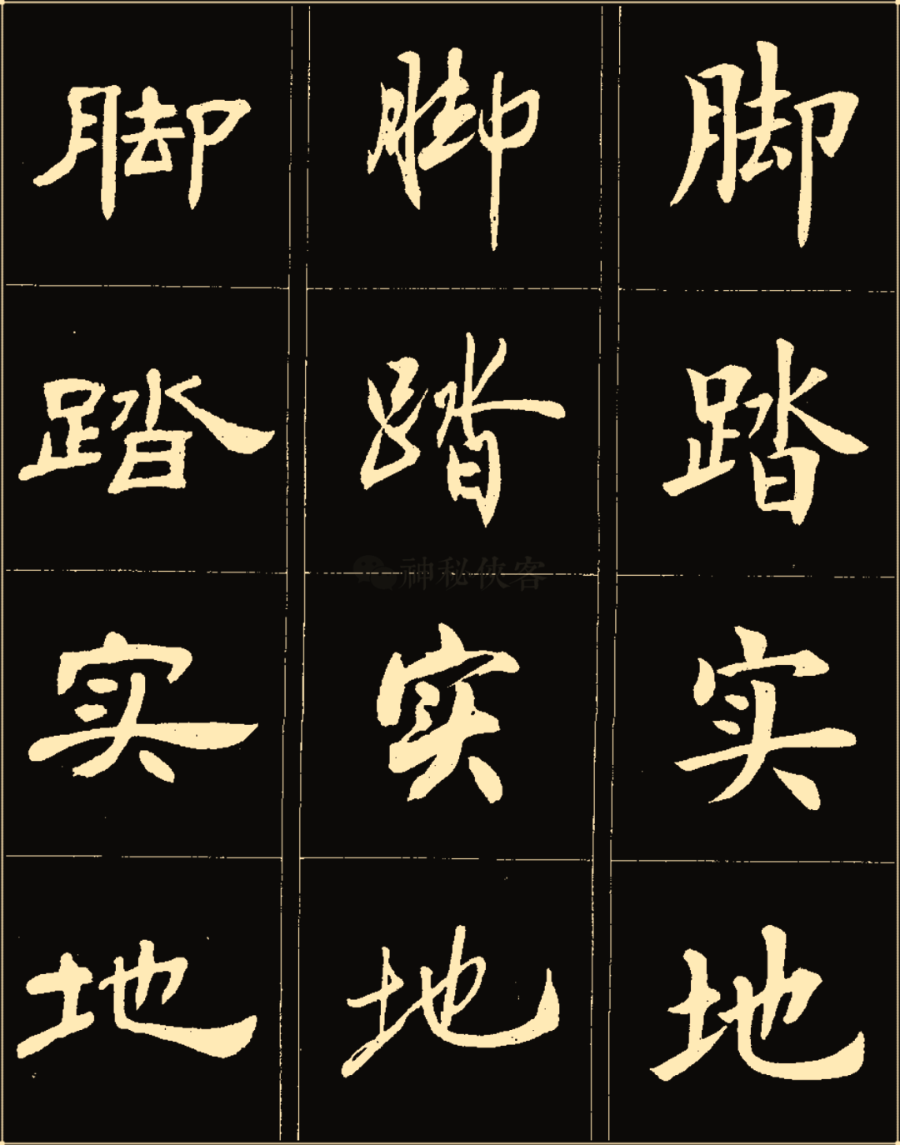 脚 脚 脚
踏 踏 踏
神秘侠客
实 实 实
地 地 地